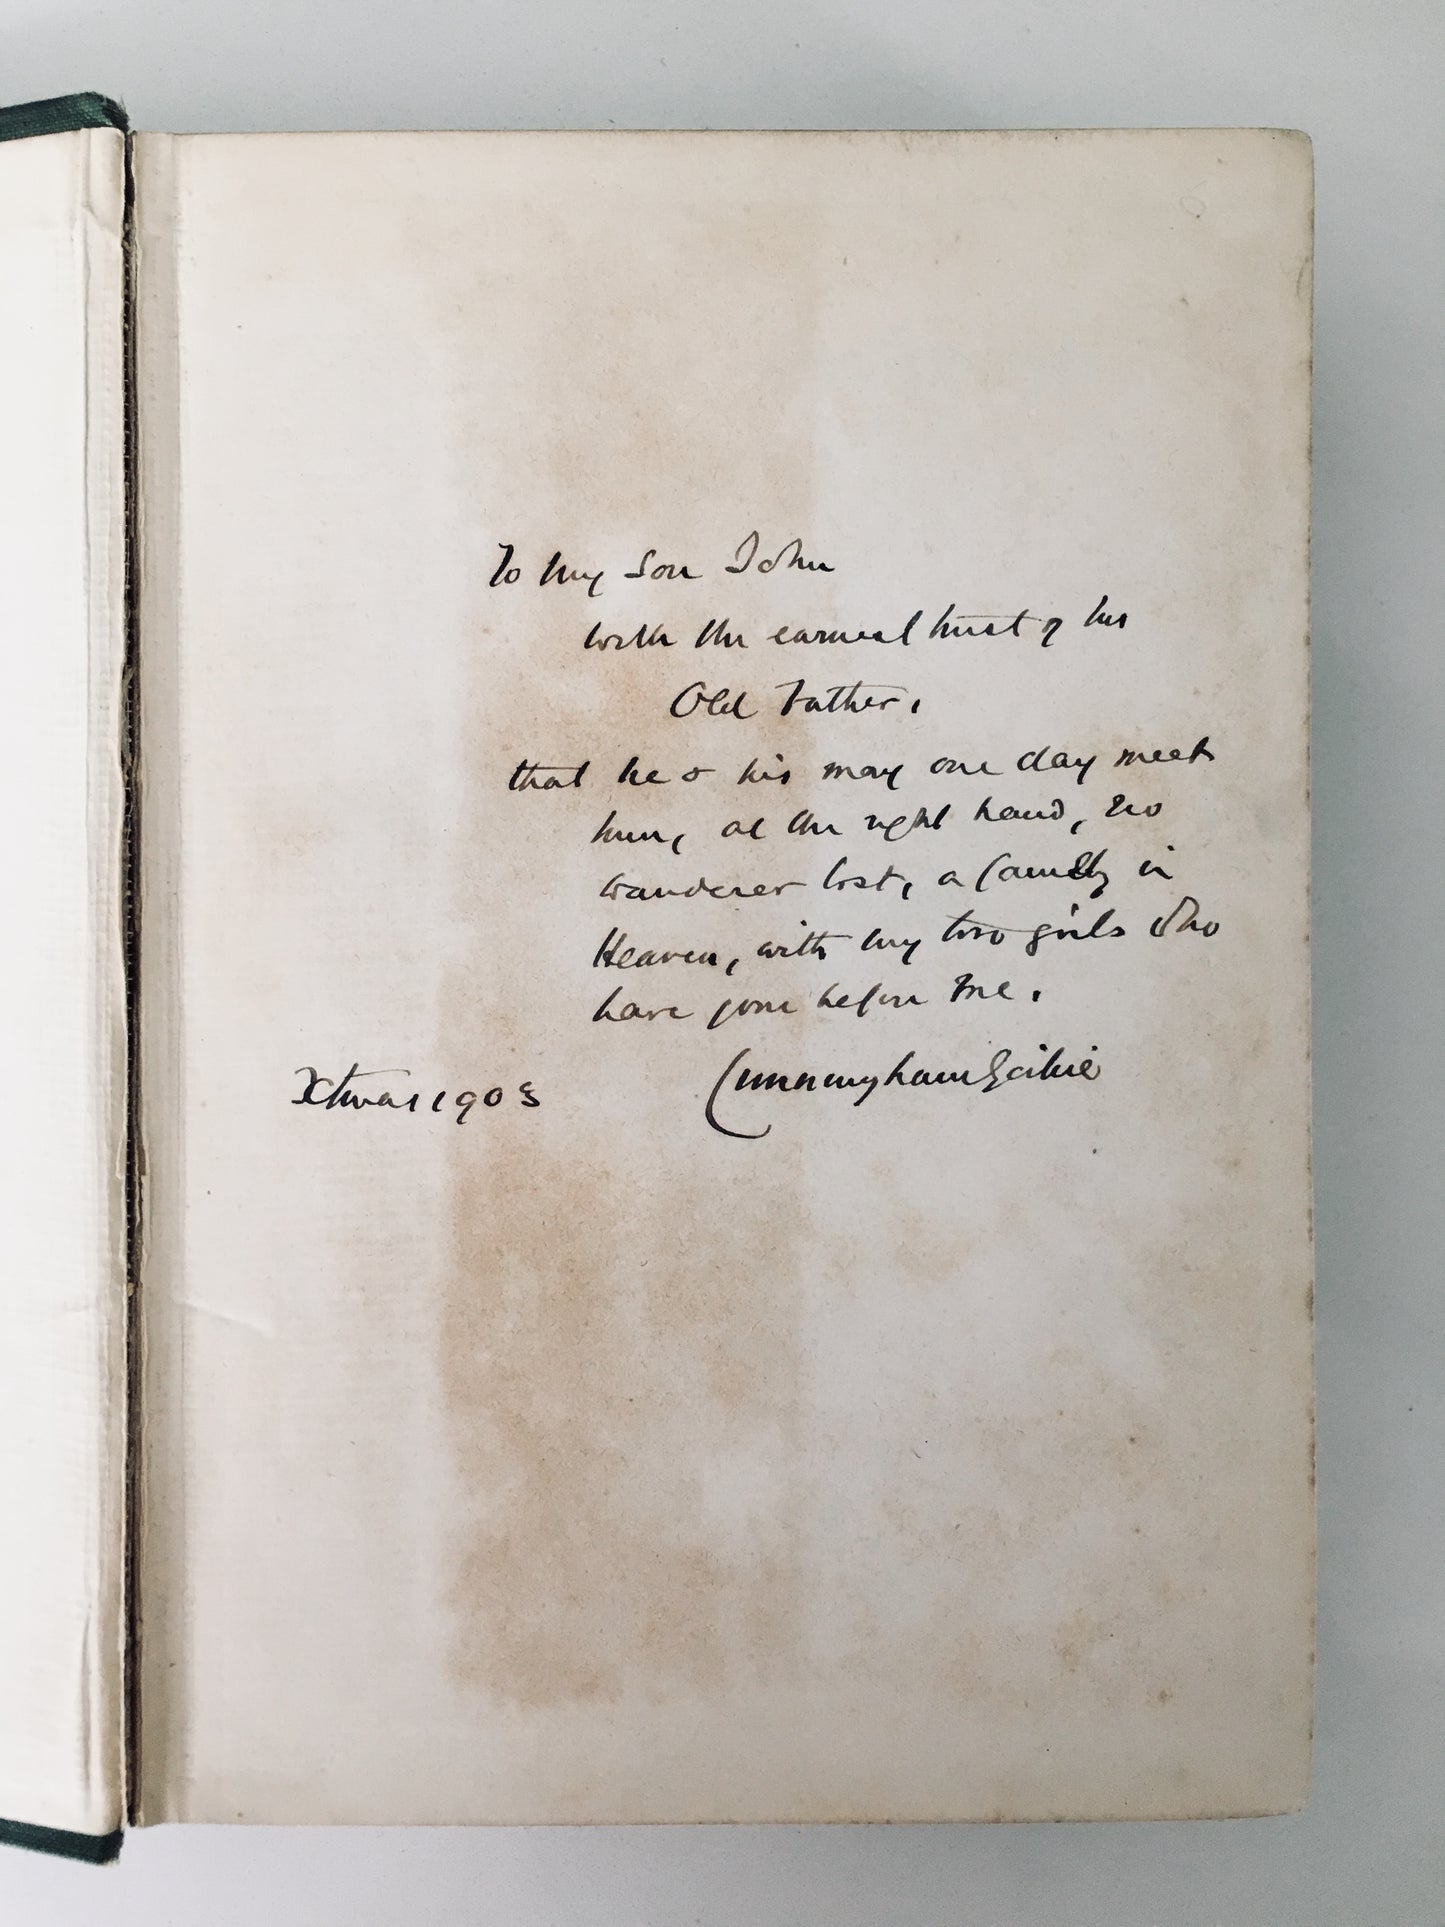 To my son John
with the earnest trust of his
Old Father,
that he & his may one day meet
him, at the right hand, no
wanderer lost, a family in
Heaven, with my two girls who
have gone before me.
Cunningham Geikie
Xtmas 1903